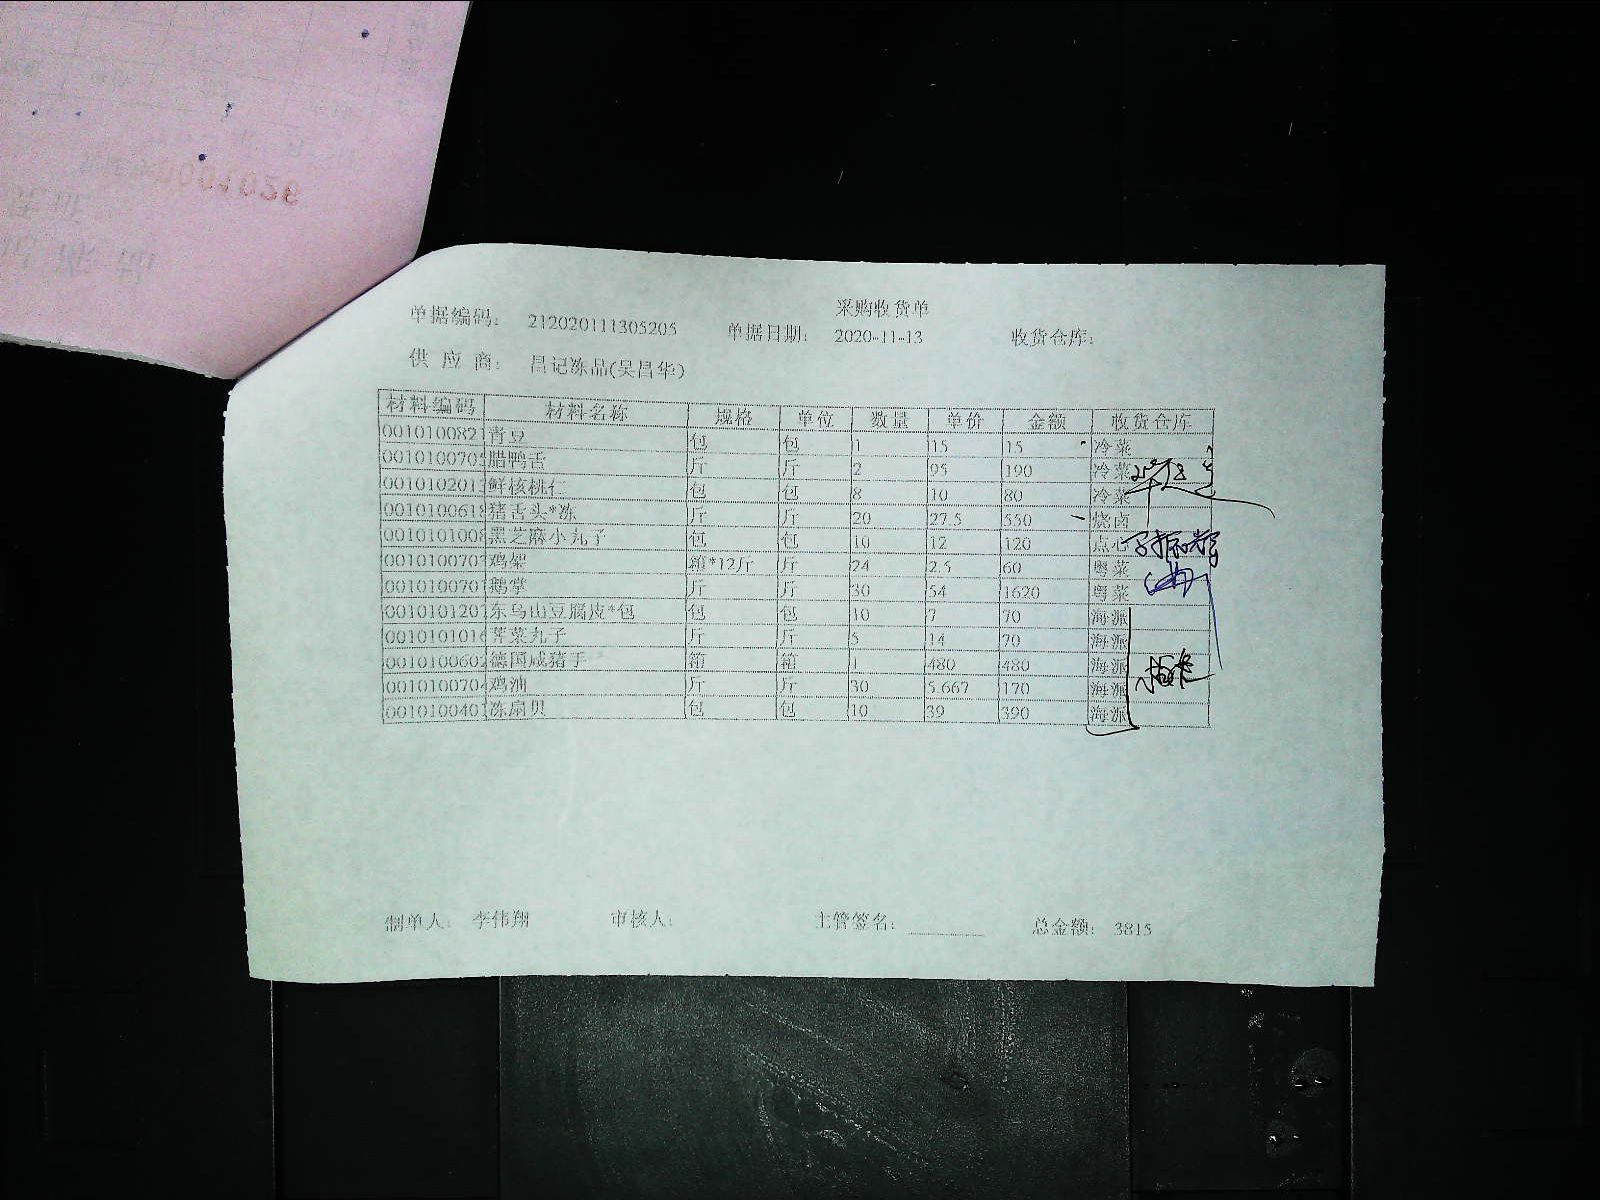 采购收货单
单据编码： 212020111305205 单据日期： 2020-11-13 收货仓库：
供 应 商： 昌记冻品(吴昌华)
材料编码 材料名称 规格 单位 数量 单价 金额 收货仓库
001010082 青豆 包 包 1 15 15 冷菜
001010070 腊鸭舌 斤 斤 2 95 190 冷菜
001010201 鲜核桃仁 包 包 8 10 80 冷菜
001010061 猪舌头*冻 斤 斤 20 27.5 550 烧卤
001010100 黑芝麻小丸子 包 包 10 12 120 点心
001010070 鸡架 箱*12斤 斤 24 2.5 60 粤菜
001010070 鹅掌 斤 斤 30 54 1620 粤菜
001010120 东乌山豆腐皮*包 包 包 10 7 70 海派
001010101 荠菜丸子 斤 斤 5 14 70 海派
001010060 德国咸猪手 箱 箱 1 480 480 海派
001010070 鸡油 斤 斤 30 5.667 170 海派
001010040 冻扇贝 包 包 10 39 390 海派
制单人： 李伟翔 审核人： 主管签名： 总金额： 3815